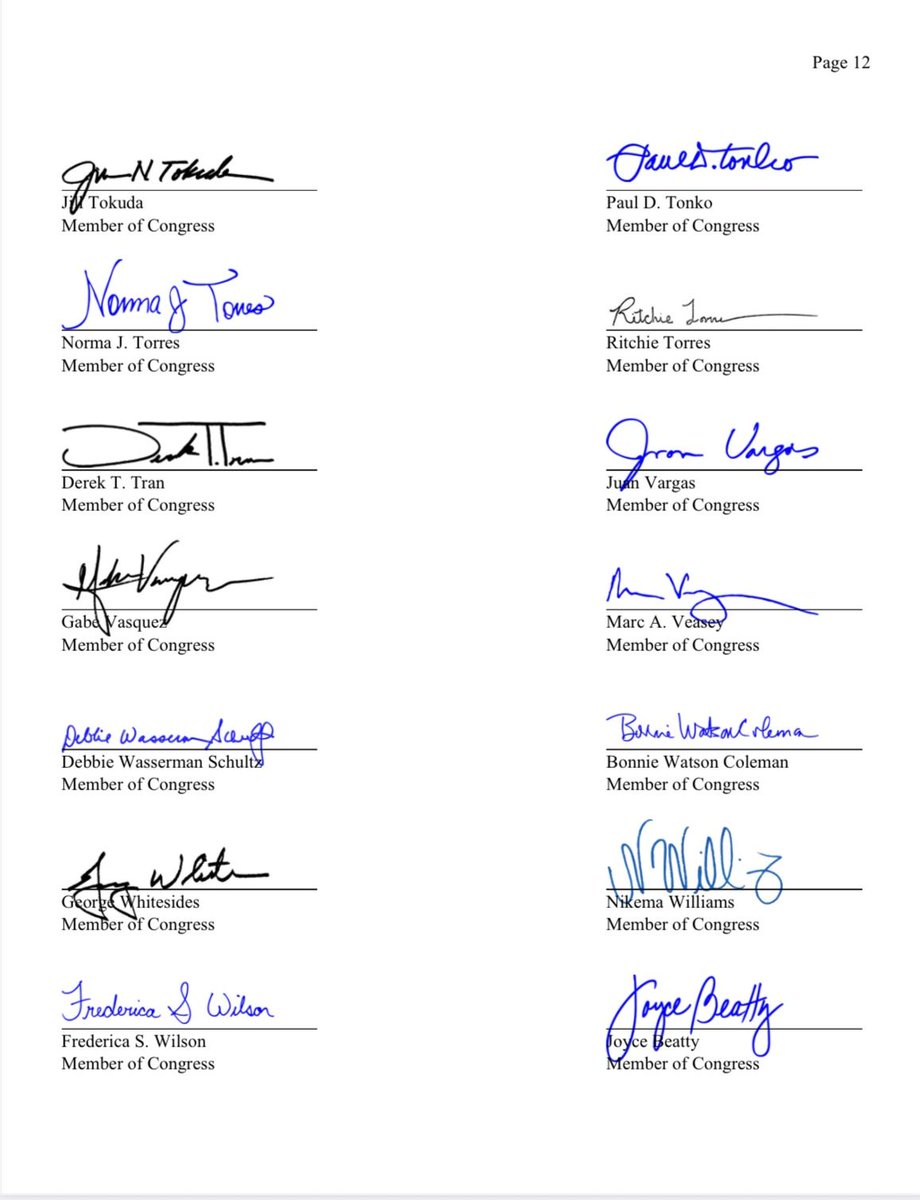 Page 12
Jill N Tokuda
Paul D. Tonko
Jill Tokuda
Paul D. Tonko
Member of Congress
Member of Congress
Norma J Torres
Ritchie Torres
Norma J. Torres
Ritchie Torres
Member of Congress
Member of Congress
Derek T. Tran
Juan Vargas
Derek T. Tran
Juan Vargas
Member of Congress
Member of Congress
Gabe Vasquez
Marc A. Veasey
Member of Congress
Member of Congress
Debbie Wasserman Schultz
Bonnie Watson Coleman
Debbie Wasserman Schultz
Bonnie Watson Coleman
Member of Congress
Member of Congress
George Whitesides
Nikema Williams
Member of Congress
Member of Congress
Frederica S Wilson
Joyce Beatty
Frederica S. Wilson
Joyce Beatty
Member of Congress
Member of Congress